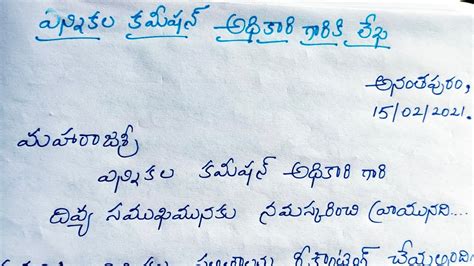 ఎన్నికల కమీషన్ అధికారి గారికి లేఖ
అనంతపురం,
15/02/2021.
మహారాజశ్రీ
ఎన్నికల కమీషన్ అధికారి గారి
దివ్య సముఖమునకు నమస్కరించి వ్రాయునది...
రీకౌంటింగ్ చేయండి